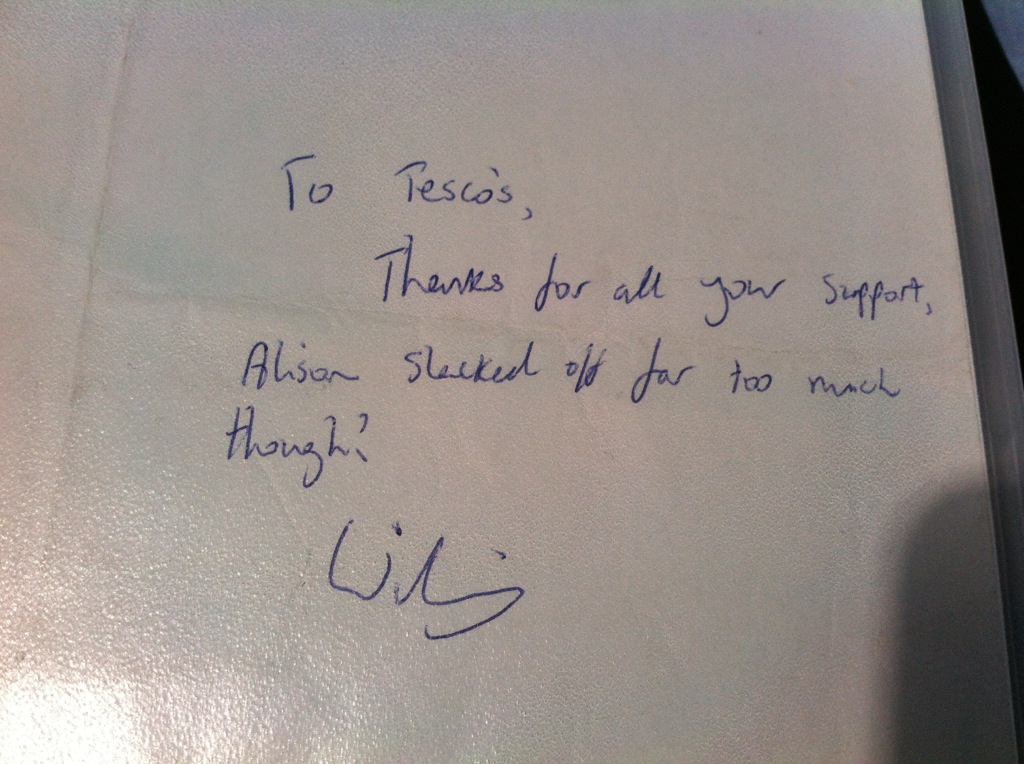 To Tesco's,
Thanks for all your support,
Alison slacked off far too much
though!